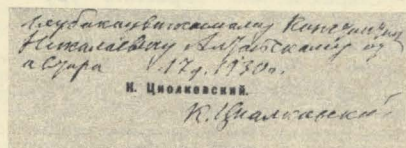 Глубокоуважаемому Константину
Николаевичу Алтайскому от
автора 17 г. 1930 г.
К. Циолковский.
К. Циолковский